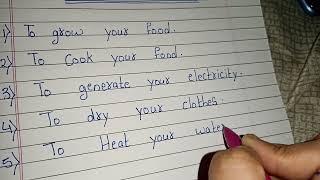 1) To grow your food.
2) To Cook your food.
3) To generate your electricity.
4) To dry your clothes.
5) To Heat your water